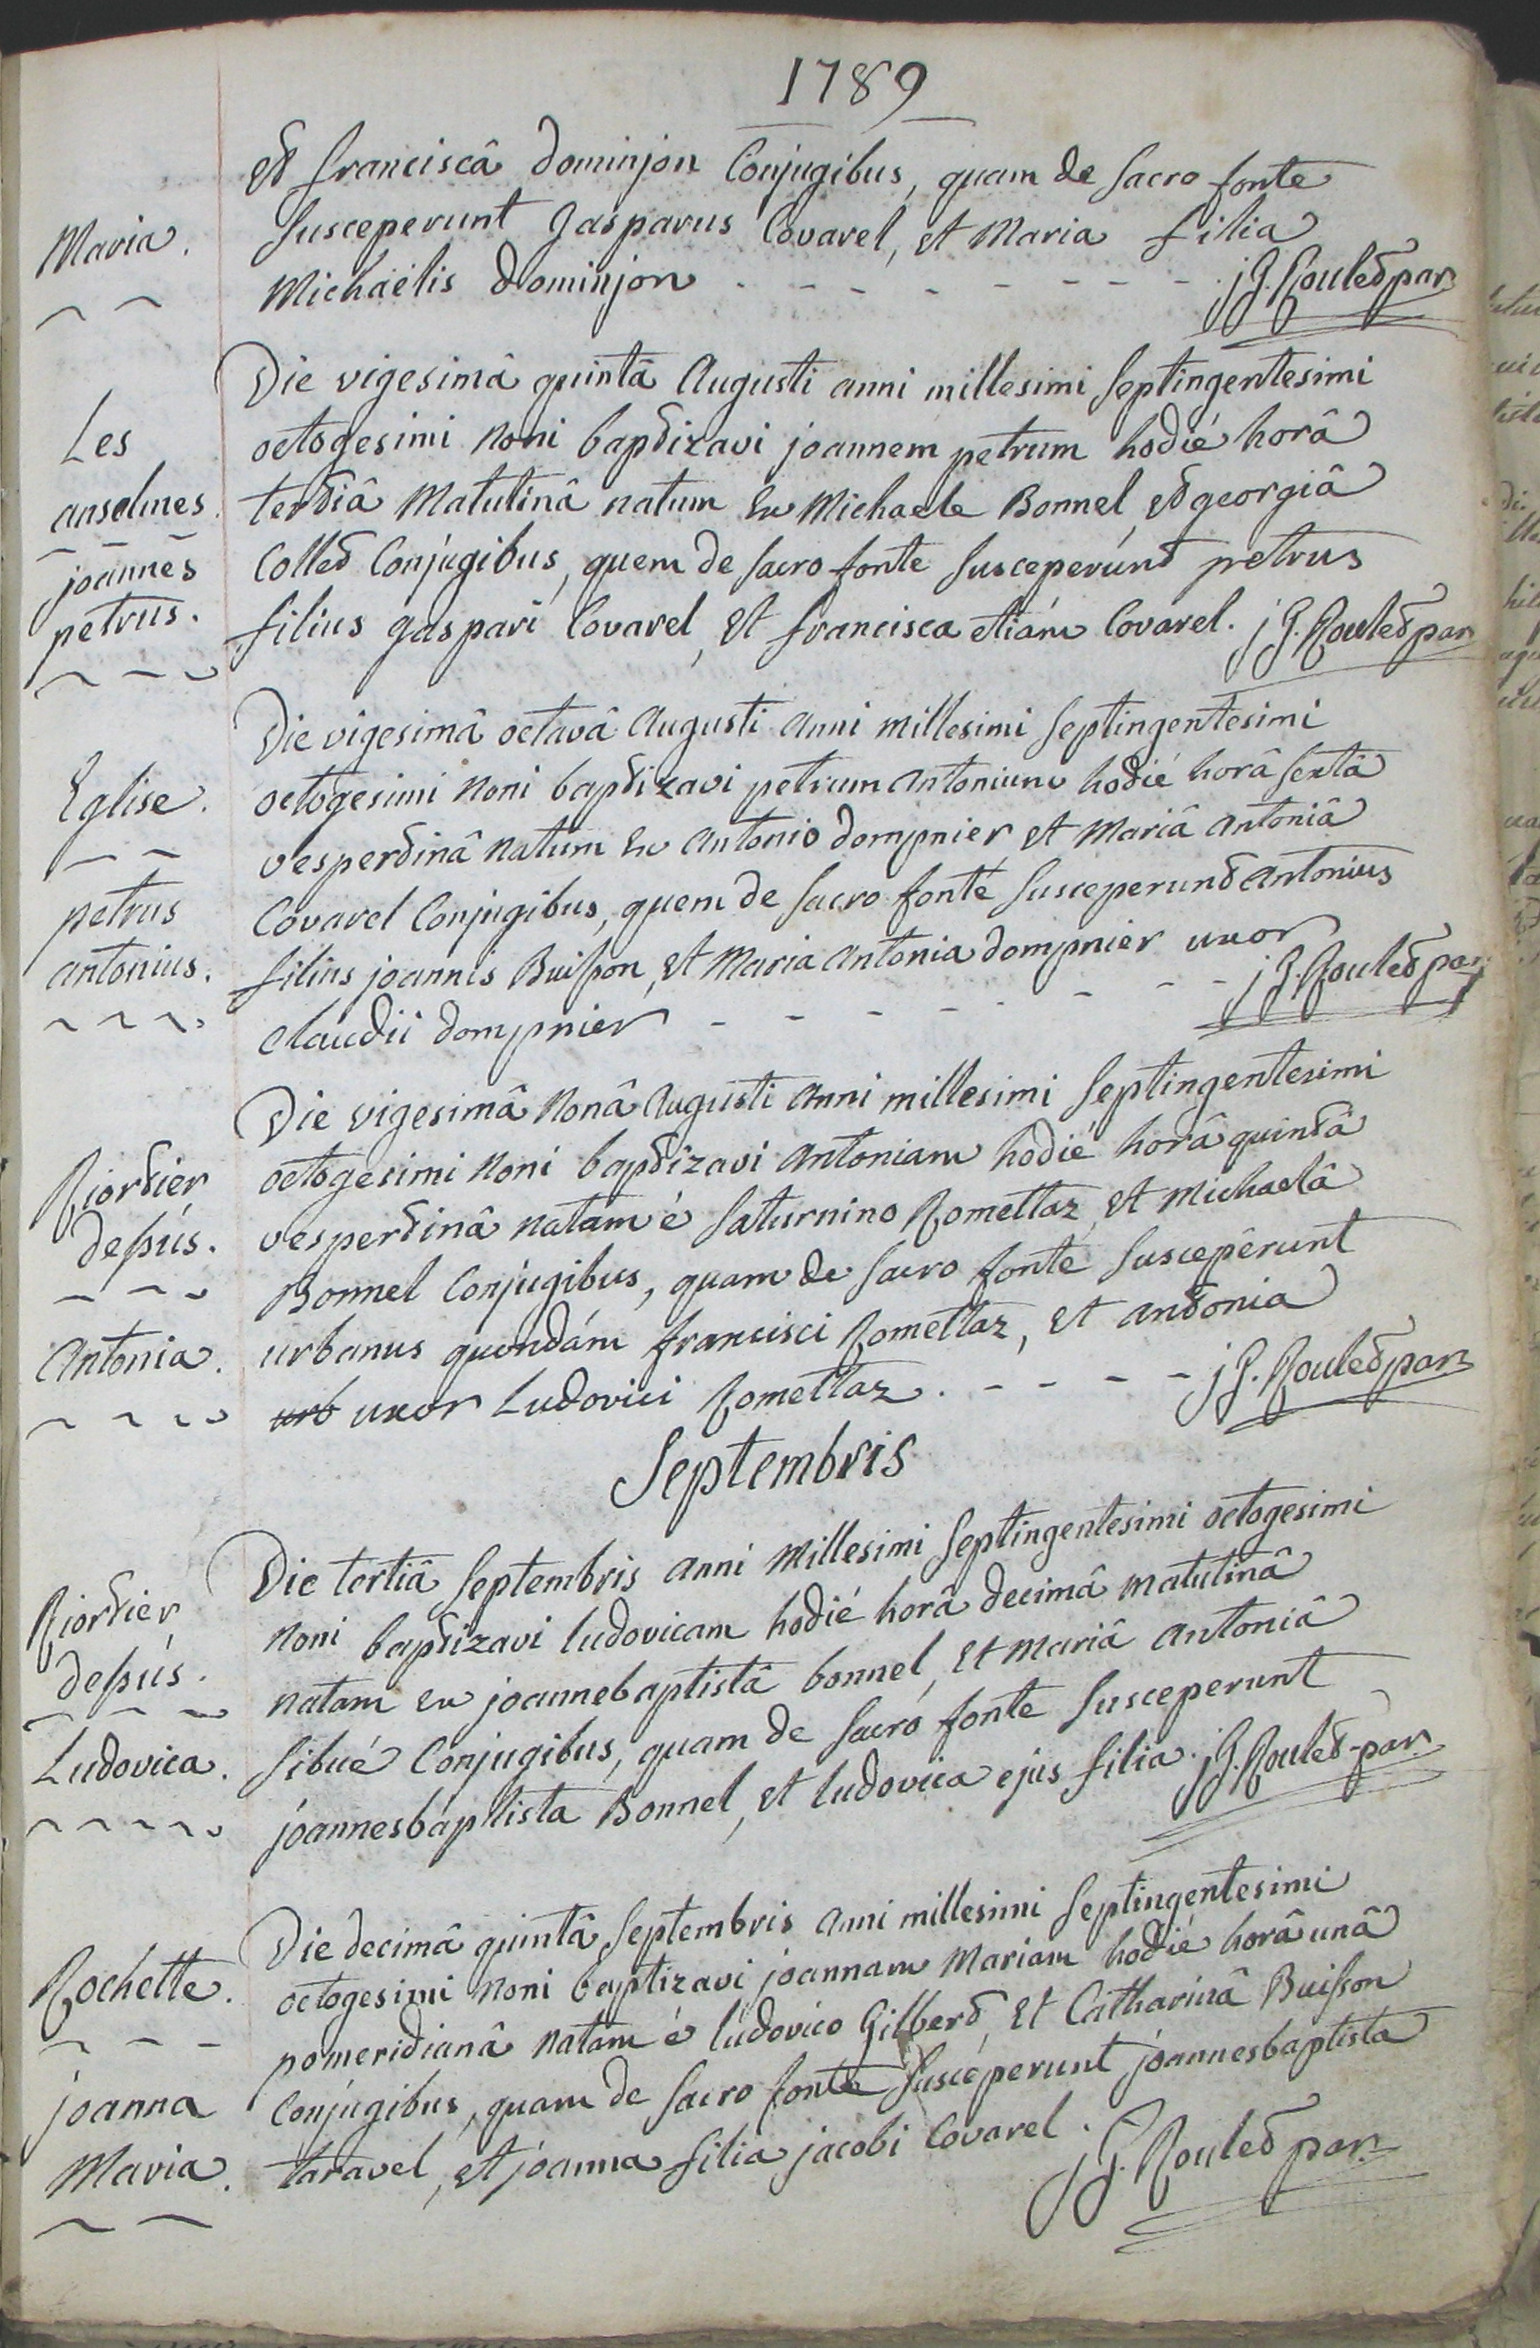 1789
Maria.
et franciscâ dominjon Conjugibus, quam de sacro fonte
susceperunt gasparus Covarel, et Maria filia
Michaëlis dominjon - - - - - - - j G. Roulet par
Les
anselmes.
joannes
petrus.
Die vigesimâ quintâ Augusti anni millesimi septingentesimi
octogesimi noni baptizavi joannem petrum hodié horâ
tertiâ Matutinâ natum Ex Michaele Bonnel, et georgiâ
Collet Conjugibus, quem de sacro fonte susceperunt petrus
filius gaspari Covarel, et francisca etiám Covarel. j G. Roulet par
Eglise.
petrus
antonius.
Die vigesimâ octavâ Augusti anni millesimi septingentesimi
octogesimi noni baptizavi petrum antonium hodié horâ sextâ
vespertinâ natum Ex antonio dompnier et Mariâ antoniâ
Covarel Conjugibus, quem de sacro fonte susceperunt antonius
filius joannis Buisson, et Maria antonia dompnier uxor
Claudii dompnier - - - - - - - j G. Roulet par
Riortier
dessús.
Antonia.
Die vigesimâ nonâ Augusti anni millesimi septingentesimi
octogesimi noni baptizavi antoniam hodié horâ quintâ
vespertinâ natam é saturnino Romettaz, et Michaelâ
Bonnel Conjugibus, quam de sacro fonte susceperunt
urbanus quondám francisci Romettaz, et antonia
urb uxor Ludovici Romettaz. - - - - j G. Roulet par
Septembris
Riortier
dessús.
Ludovica.
Die tertiâ septembris anni Millesimi septingentesimi octogesimi
noni baptizavi ludovicam hodié horâ decimâ matutinâ
natam Ex joannebaptistâ bonnel, et Mariâ antoniâ
sibué Conjugibus, quam de sacro fonte susceperunt
joannesbaptista Bonnel, et ludovica ejus filia. j G. Roulet-par
Rochette.
joanna
Maria.
Die decimâ quintâ septembris anni millesimi septingentesimi
octogesimi noni baptizavi joannam Mariam hodié horâ unâ
pomeridianâ natam é ludovico Gilbert, et Catharinâ Buisson
Conjugibus, quam de sacro fonte susceperunt joannesbaptista
taravel, et joanna filia jacobi Covarel. j G. Roulet par